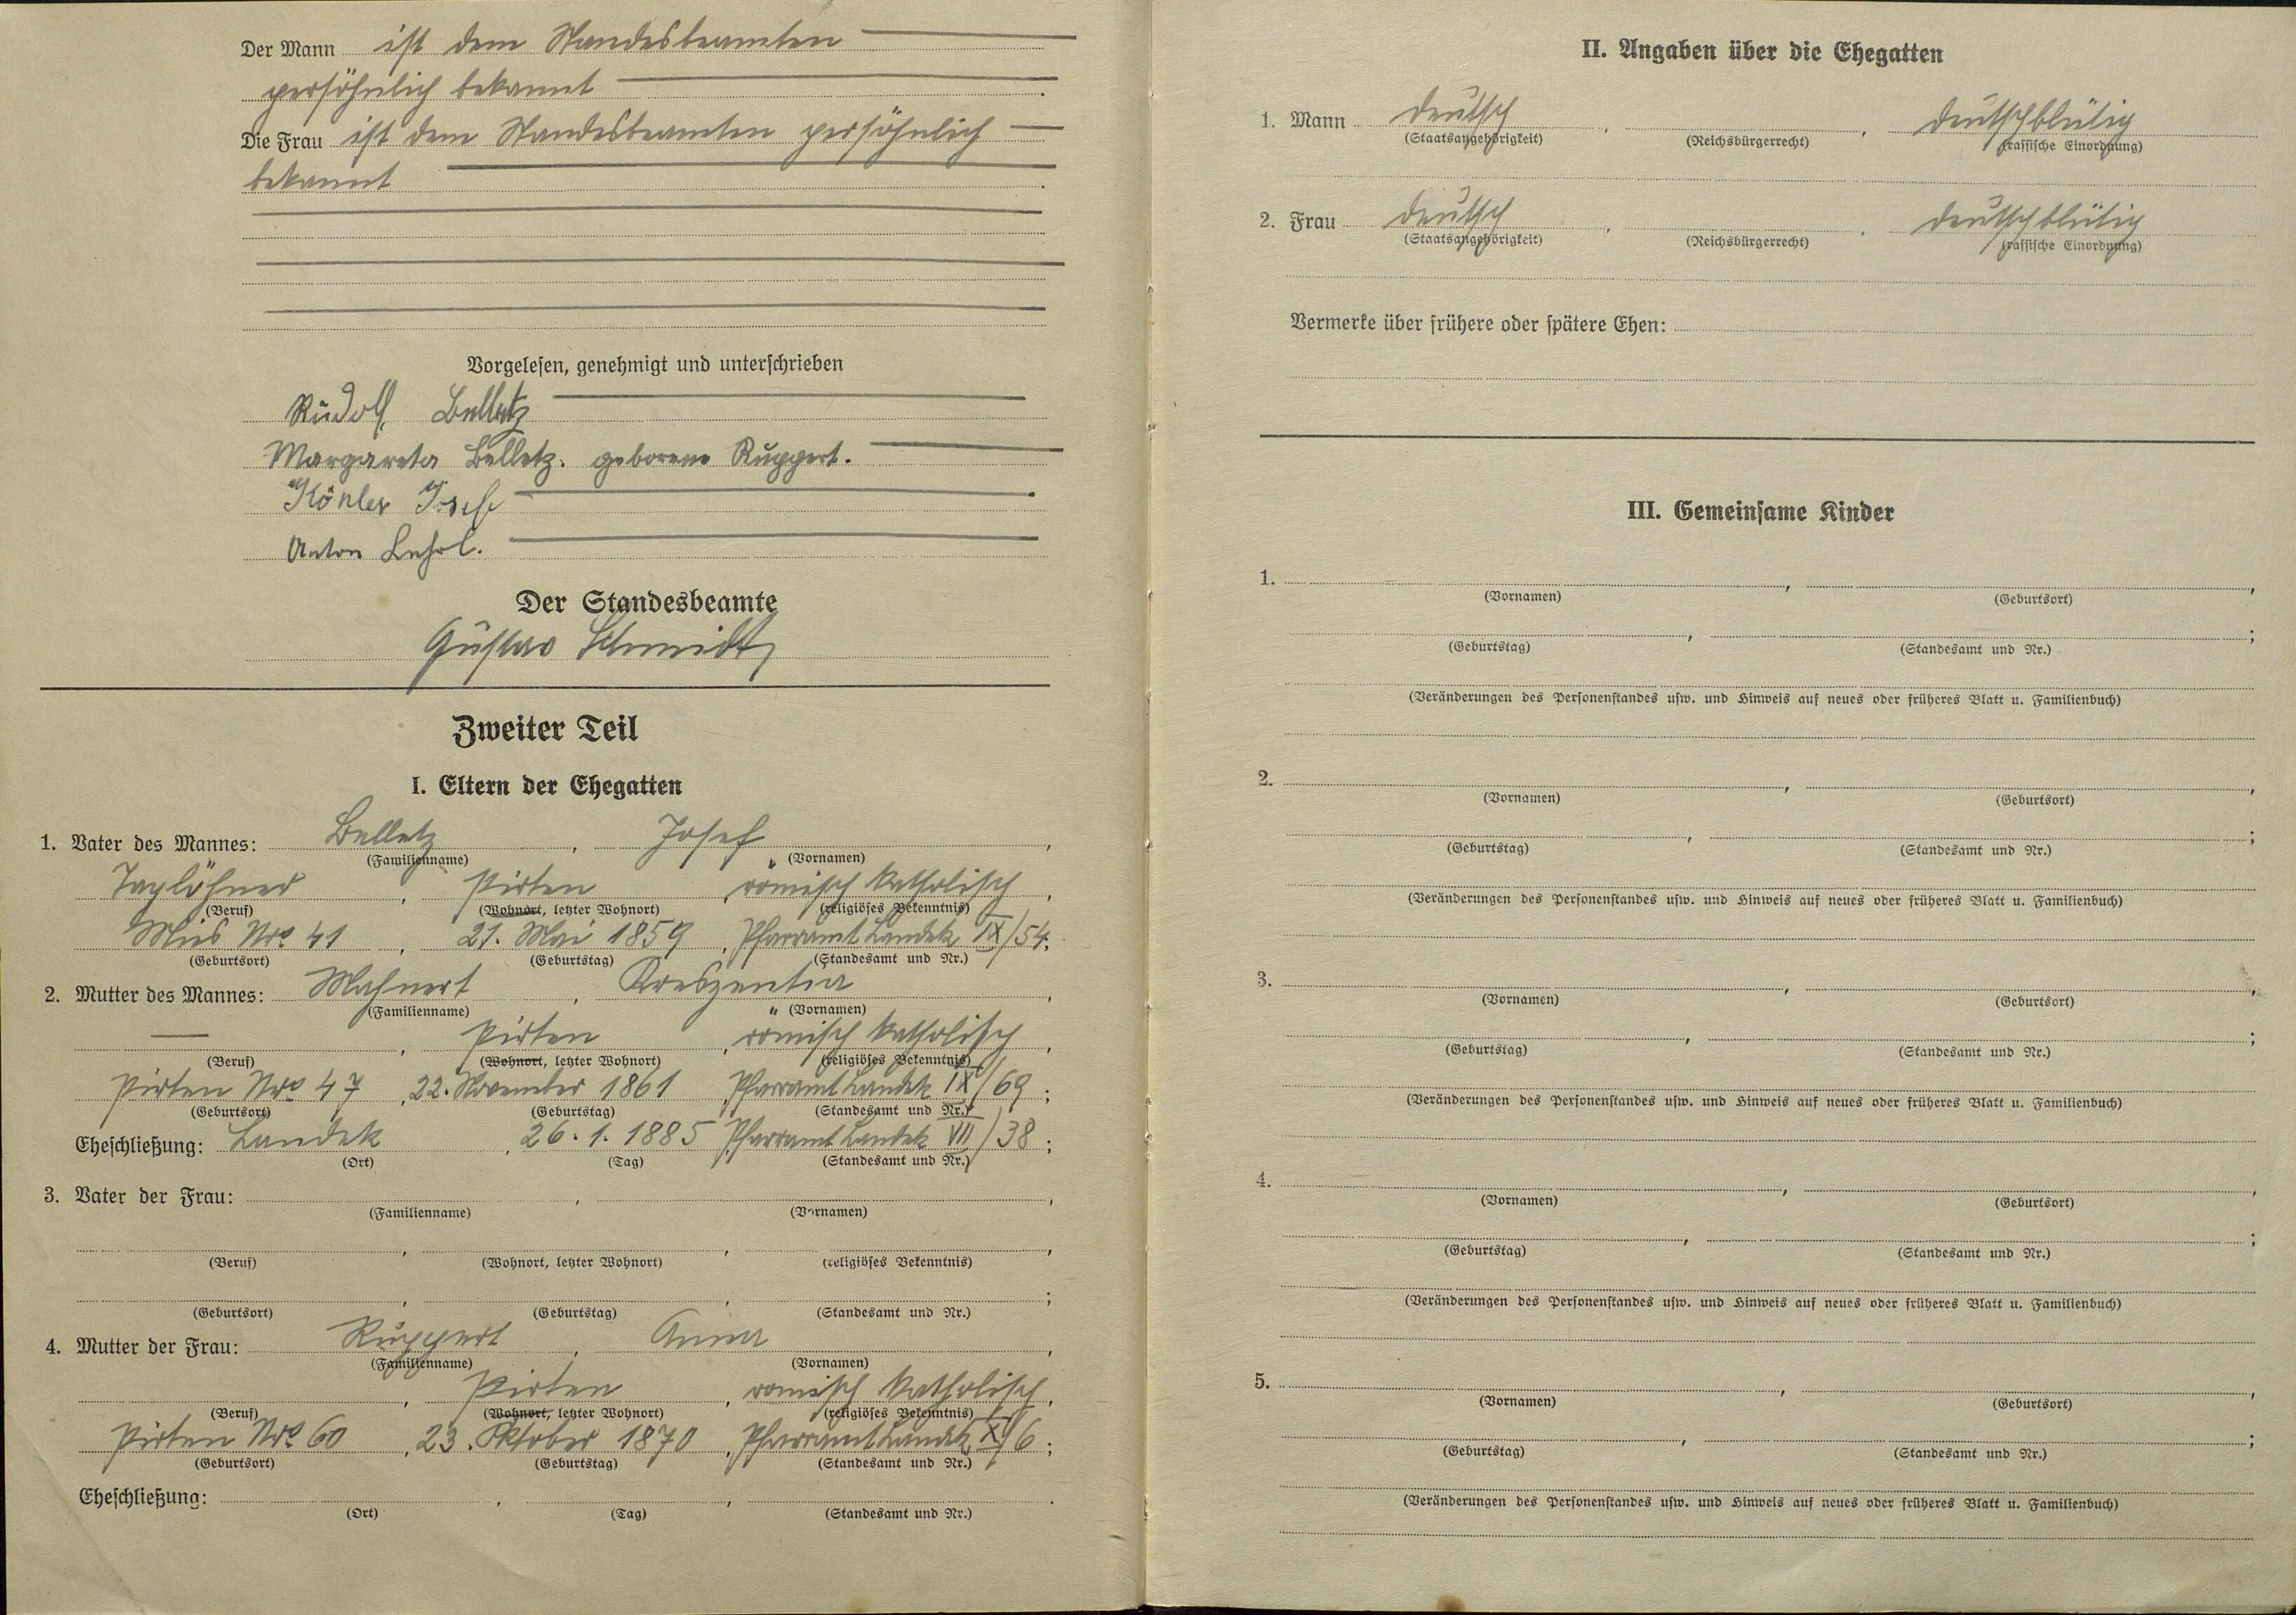 Der Mann ist dem Standesbeamten
persöhnlich bekannt .
Die Frau ist dem Standesbeamten persöhnlich
bekannt .
Vorgelesen, genehmigt und unterschrieben
Rudolf Belletz
Margareta Belletz. geborene Ruppert.
Josef
Anton
Der Standesbeamte
Gustav Schmidt
Zweiter Teil
I. Eltern der Ehegatten
1. Vater des Mannes: Belletz , Josef ,
(Familienname) (Vornamen)
Taglöhner , Pirten , römisch katholisch ,
(Beruf) (Wohnort, letzter Wohnort) (religiöses Bekenntnis)
Mies Nro 41 , 21. Mai 1859 , Pfarramt Landek IX/54;
(Geburtsort) (Geburtstag) (Standesamt und Nr.)
2. Mutter des Mannes: Mahnert , Kreszentia ,
(Familienname) (Vornamen)
— , Pirten , römisch katholisch ,
(Beruf) (Wohnort, letzter Wohnort) (religiöses Bekenntnis)
Pirten Nro 47 , 22. November 1861 , Pfarramt Landek IX/69 ;
(Geburtsort) (Geburtstag) (Standesamt und Nr.)
Eheschließung: Landek , 26. 1. 1885 , Pfarramt Landek VII/38 ;
(Ort) (Tag) (Standesamt und Nr.)
3. Vater der Frau: , ,
(Familienname) (Vornamen)
, , ,
(Beruf) (Wohnort, letzter Wohnort) (religiöses Bekenntnis)
, , ;
(Geburtsort) (Geburtstag) (Standesamt und Nr.)
4. Mutter der Frau: Ruppert , Anna ,
(Familienname) (Vornamen)
, Pirten , romisch katholisch ,
(Beruf) (Wohnort, letzter Wohnort) (religiöses Bekenntnis)
Pirten Nro 60 , 23. Oktober 1870 , Pfarramt Landek X/6 ;
(Geburtsort) (Geburtstag) (Standesamt und Nr.)
Eheschließung: , , .
(Ort) (Tag) (Standesamt und Nr.)
II. Angaben über die Ehegatten
1. Mann deutsch , , deutschblütig
(Staatsangehörigkeit) (Reichsbürgerrecht) (rassische Einordnung)
2. Frau deutsch , , deutschblütig
(Staatsangehörigkeit) (Reichsbürgerrecht) (rassische Einordnung)
Vermerke über frühere oder spätere Ehen:
III. Gemeinsame Kinder
1. , ,
(Vornamen) (Geburtsort)
, ;
(Geburtstag) (Standesamt und Nr.)
(Veränderungen des Personenstandes usw. und Hinweis auf neues oder früheres Blatt u. Familienbuch)
2. , ,
(Vornamen) (Geburtsort)
, ;
(Geburtstag) (Standesamt und Nr.)
(Veränderungen des Personenstandes usw. und Hinweis auf neues oder früheres Blatt u. Familienbuch)
3. , ,
(Vornamen) (Geburtsort)
, ;
(Geburtstag) (Standesamt und Nr.)
(Veränderungen des Personenstandes usw. und Hinweis auf neues oder früheres Blatt u. Familienbuch)
4. , ,
(Vornamen) (Geburtsort)
, ;
(Geburtstag) (Standesamt und Nr.)
(Veränderungen des Personenstandes usw. und Hinweis auf neues oder früheres Blatt u. Familienbuch)
5. , ,
(Vornamen) (Geburtsort)
, ;
(Geburtstag) (Standesamt und Nr.)
(Veränderungen des Personenstandes usw. und Hinweis auf neues oder früheres Blatt u. Familienbuch)